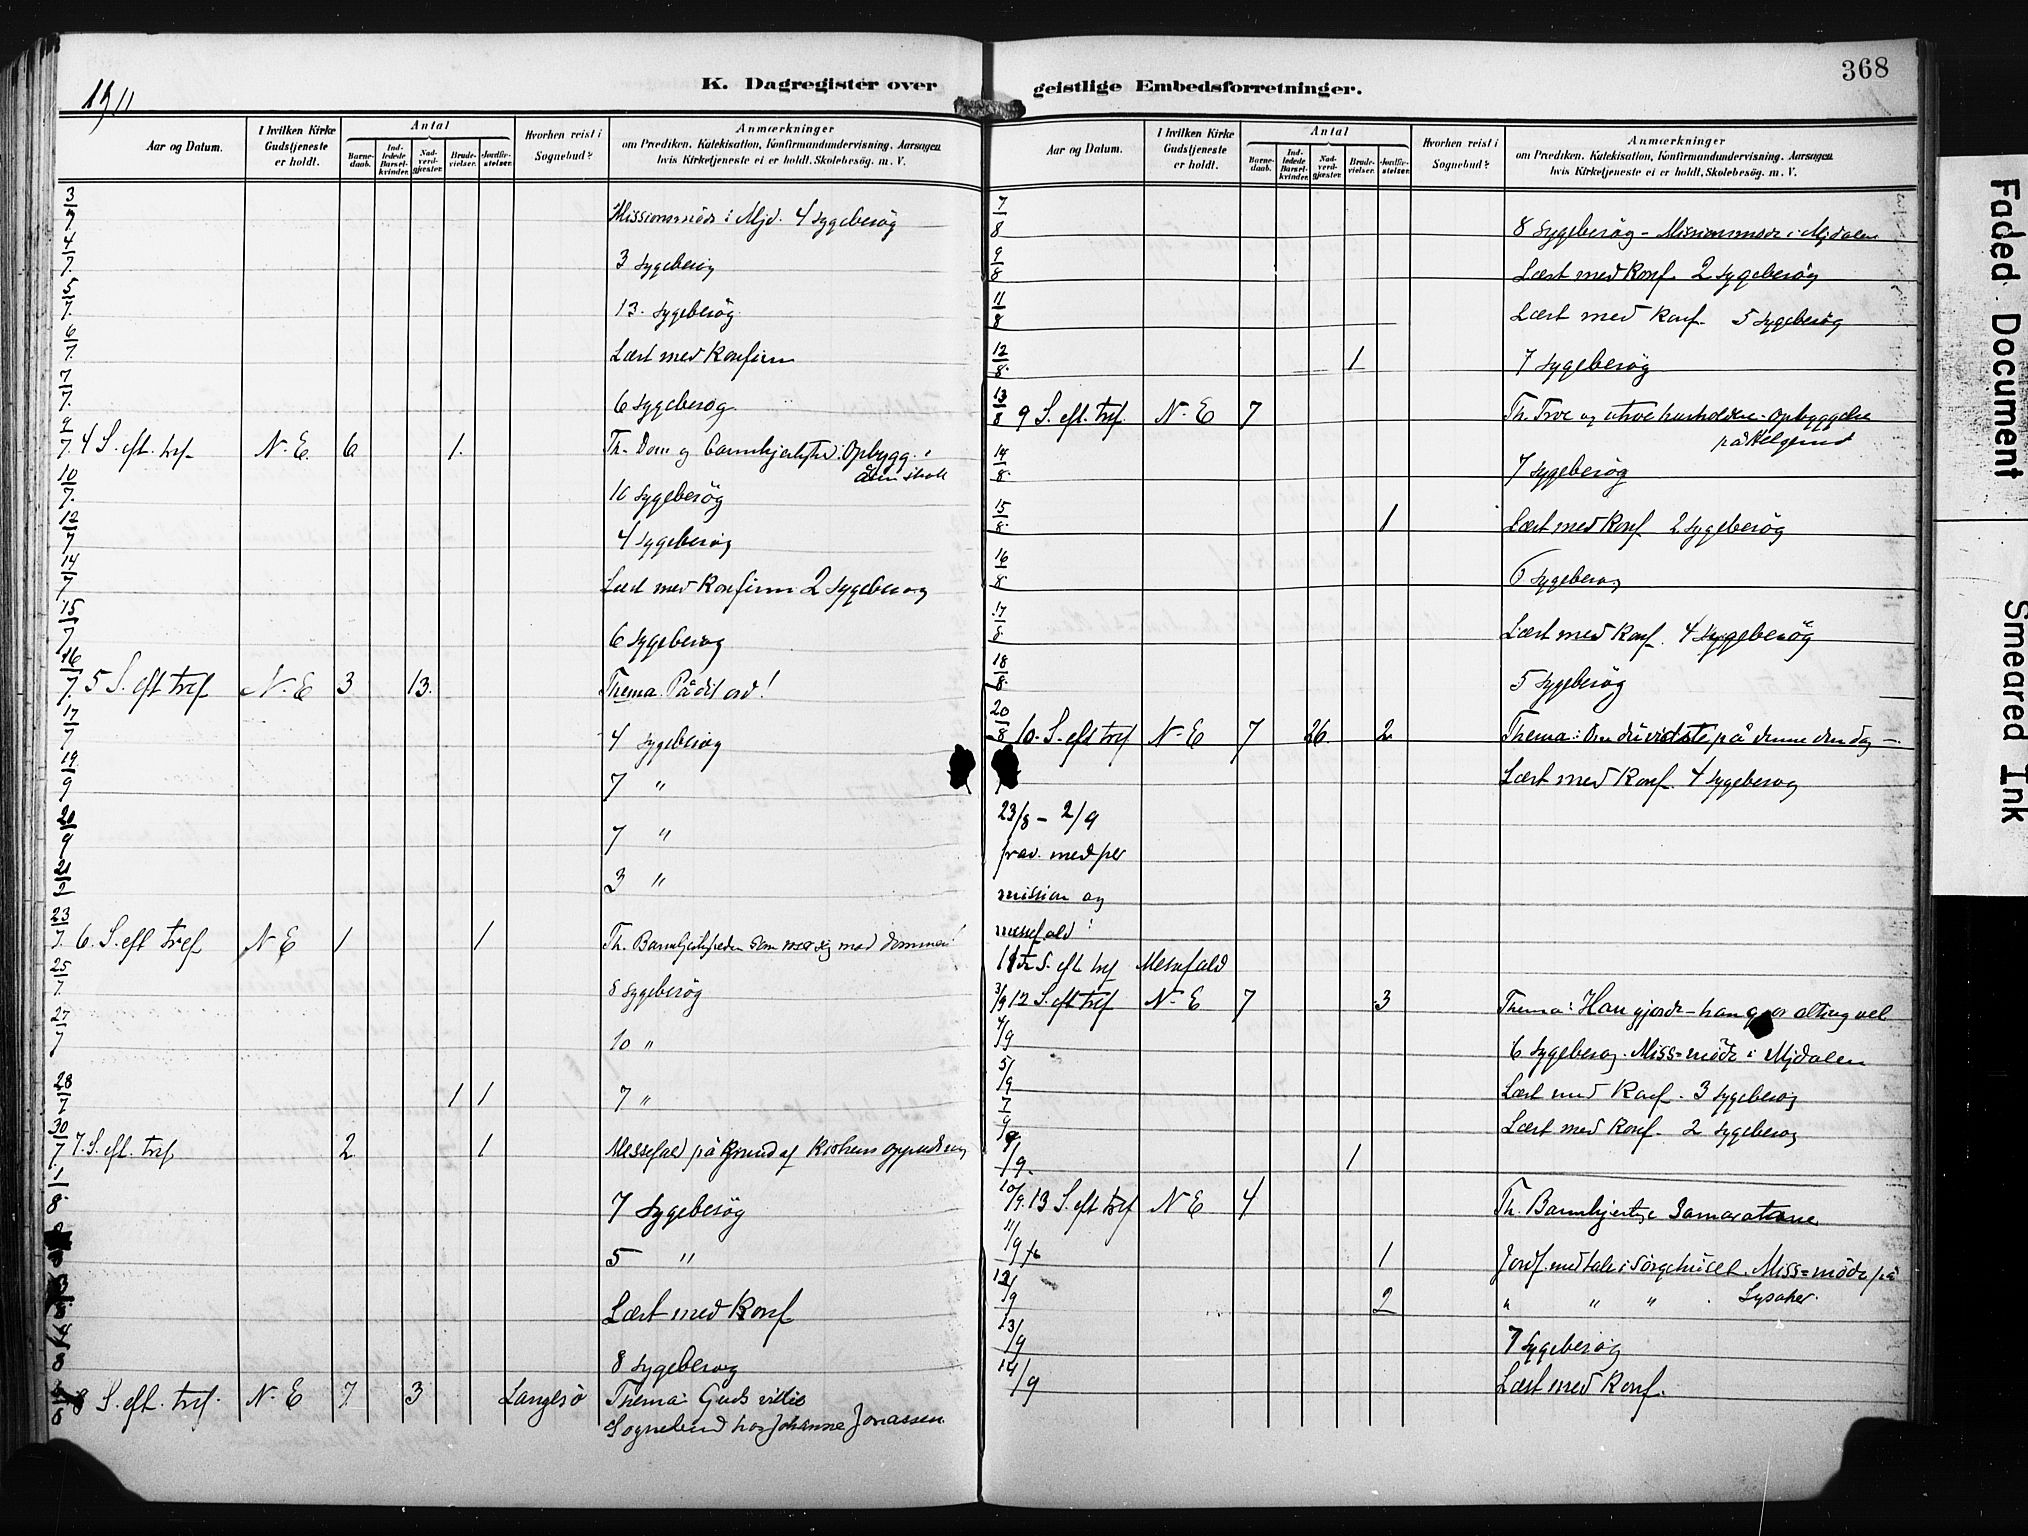 368
1911
K. Dagregister over geistlige Embedsforretninger.
Aar og Datum. I hvilken Kirke Gudstjeneste er holdt. Antal Barnedaab. Indledede Barselkvinder. Nadverdgjæster. Brudevielser. Jordfæstelser. Hvorhen reist i Sognebud? Anmærkninger om Prædiken, Katekisation, Konfirmandundervisning, Aarsagen hvis Kirketjeneste ei er holdt, Skolebesög. m. V.
3/7 Missionsmöde i Mjd. 4 sygebesög
4/7. 3 sygebesög
5/7. 13. sygebesög
6/7. Læst med Konfirm
7/7. 6 sygebesög
9/7. 4 S. eft. tref. N. E. 6 1. Th. Dom og barmhjertighed. Opbygg. i
10/7. sygebesög
12/7 4 sygebesög
14/7 Læst med Konfirm 2 sygebesög
15/7 6 sygebesög
16/7. 5 S. eft tref N. E 3 13. Thema. På dit ord!
17/7 4 sygebesög
19/9 7 "
20/9 7 "
21 3 "
23/7. 6. S. eft tref N. E 1 1 Th. Barmhjertigheden som roser sig mod dommen!
25/7. 8 sygebesög
27/7 10 "
28/7 1 1 7 "
30/7. 7. S. eft. tref 2 1 Messefald på Grund af Kirkens oppudsning
1/8. 7 Sygebesög
5 "
3/8. Læst med Konf
4/8 8 sygebesög
8 S. eft. tref. N. E 7 3 Langesö Thema: Guds vilie
Sognebud hos Johanne Jonassen
Aar og Datum. I hvilken Kirke Gudstjeneste er holdt. Antal Barnedaab. Indledede Barselkvinder. Nadverdgjæster. Brudevielser. Jordfæstelser. Hvorhen reist i Sognebud? Anmærkninger om Prædiken, Katekisation, Konfirmandundervisning, Aarsagen hvis Kirketjeneste ei er holdt, Skolebesög. m. V.
7/8 8 Sygebesög - Missionsmöde i Mjdalen
9/8 Læst med Konf. 2 sygebesög
11/8 Læst med Konf. 5 sygebesög
12/8. 1 7 sygebesög
13/8 9 S. eft. tref. N. E 7 Th. Troe og utroe husholdere. Opbyggelse
på Helgerud
14/8. 7 sygebesög
15/8. 1 Læst med Konf 2 sygebesög
16/8. 6 sygebesög
17/8. Læst med Konf. 4 sygebesög
18/8. 5 sygebesög
20/8 10. S. eft tref N. E 7 26 2 Thema: Om du vidste på denne din dag -
Læst med Konf. 4 sygebesög
23/8 - 2/9
frav. med per
mission og
messefald!
11te S. eft tref Messefald
3/9 12 S. eft tref. N. E 7 3 Thema: Han gjorde - han gjør alting vel
4/9 6 Sygebesög. Miss=möde i Mjdalen
5/9 Læst med Konf. 3 sygebesög
7/9 Læst med Konf. 2 sygebesög
9/9. 1
10/9. 13 S. eft tref N. E 4 Th. Barmhjertige Samaratane
11/9 1 Jordf. med tale i Sörgehuset. Miss=möde på
12/9 2 " " " Lysaker.
13/9 7 sygebesög
14/9 Læst med Konf.
Faded Document
Smeared Ink